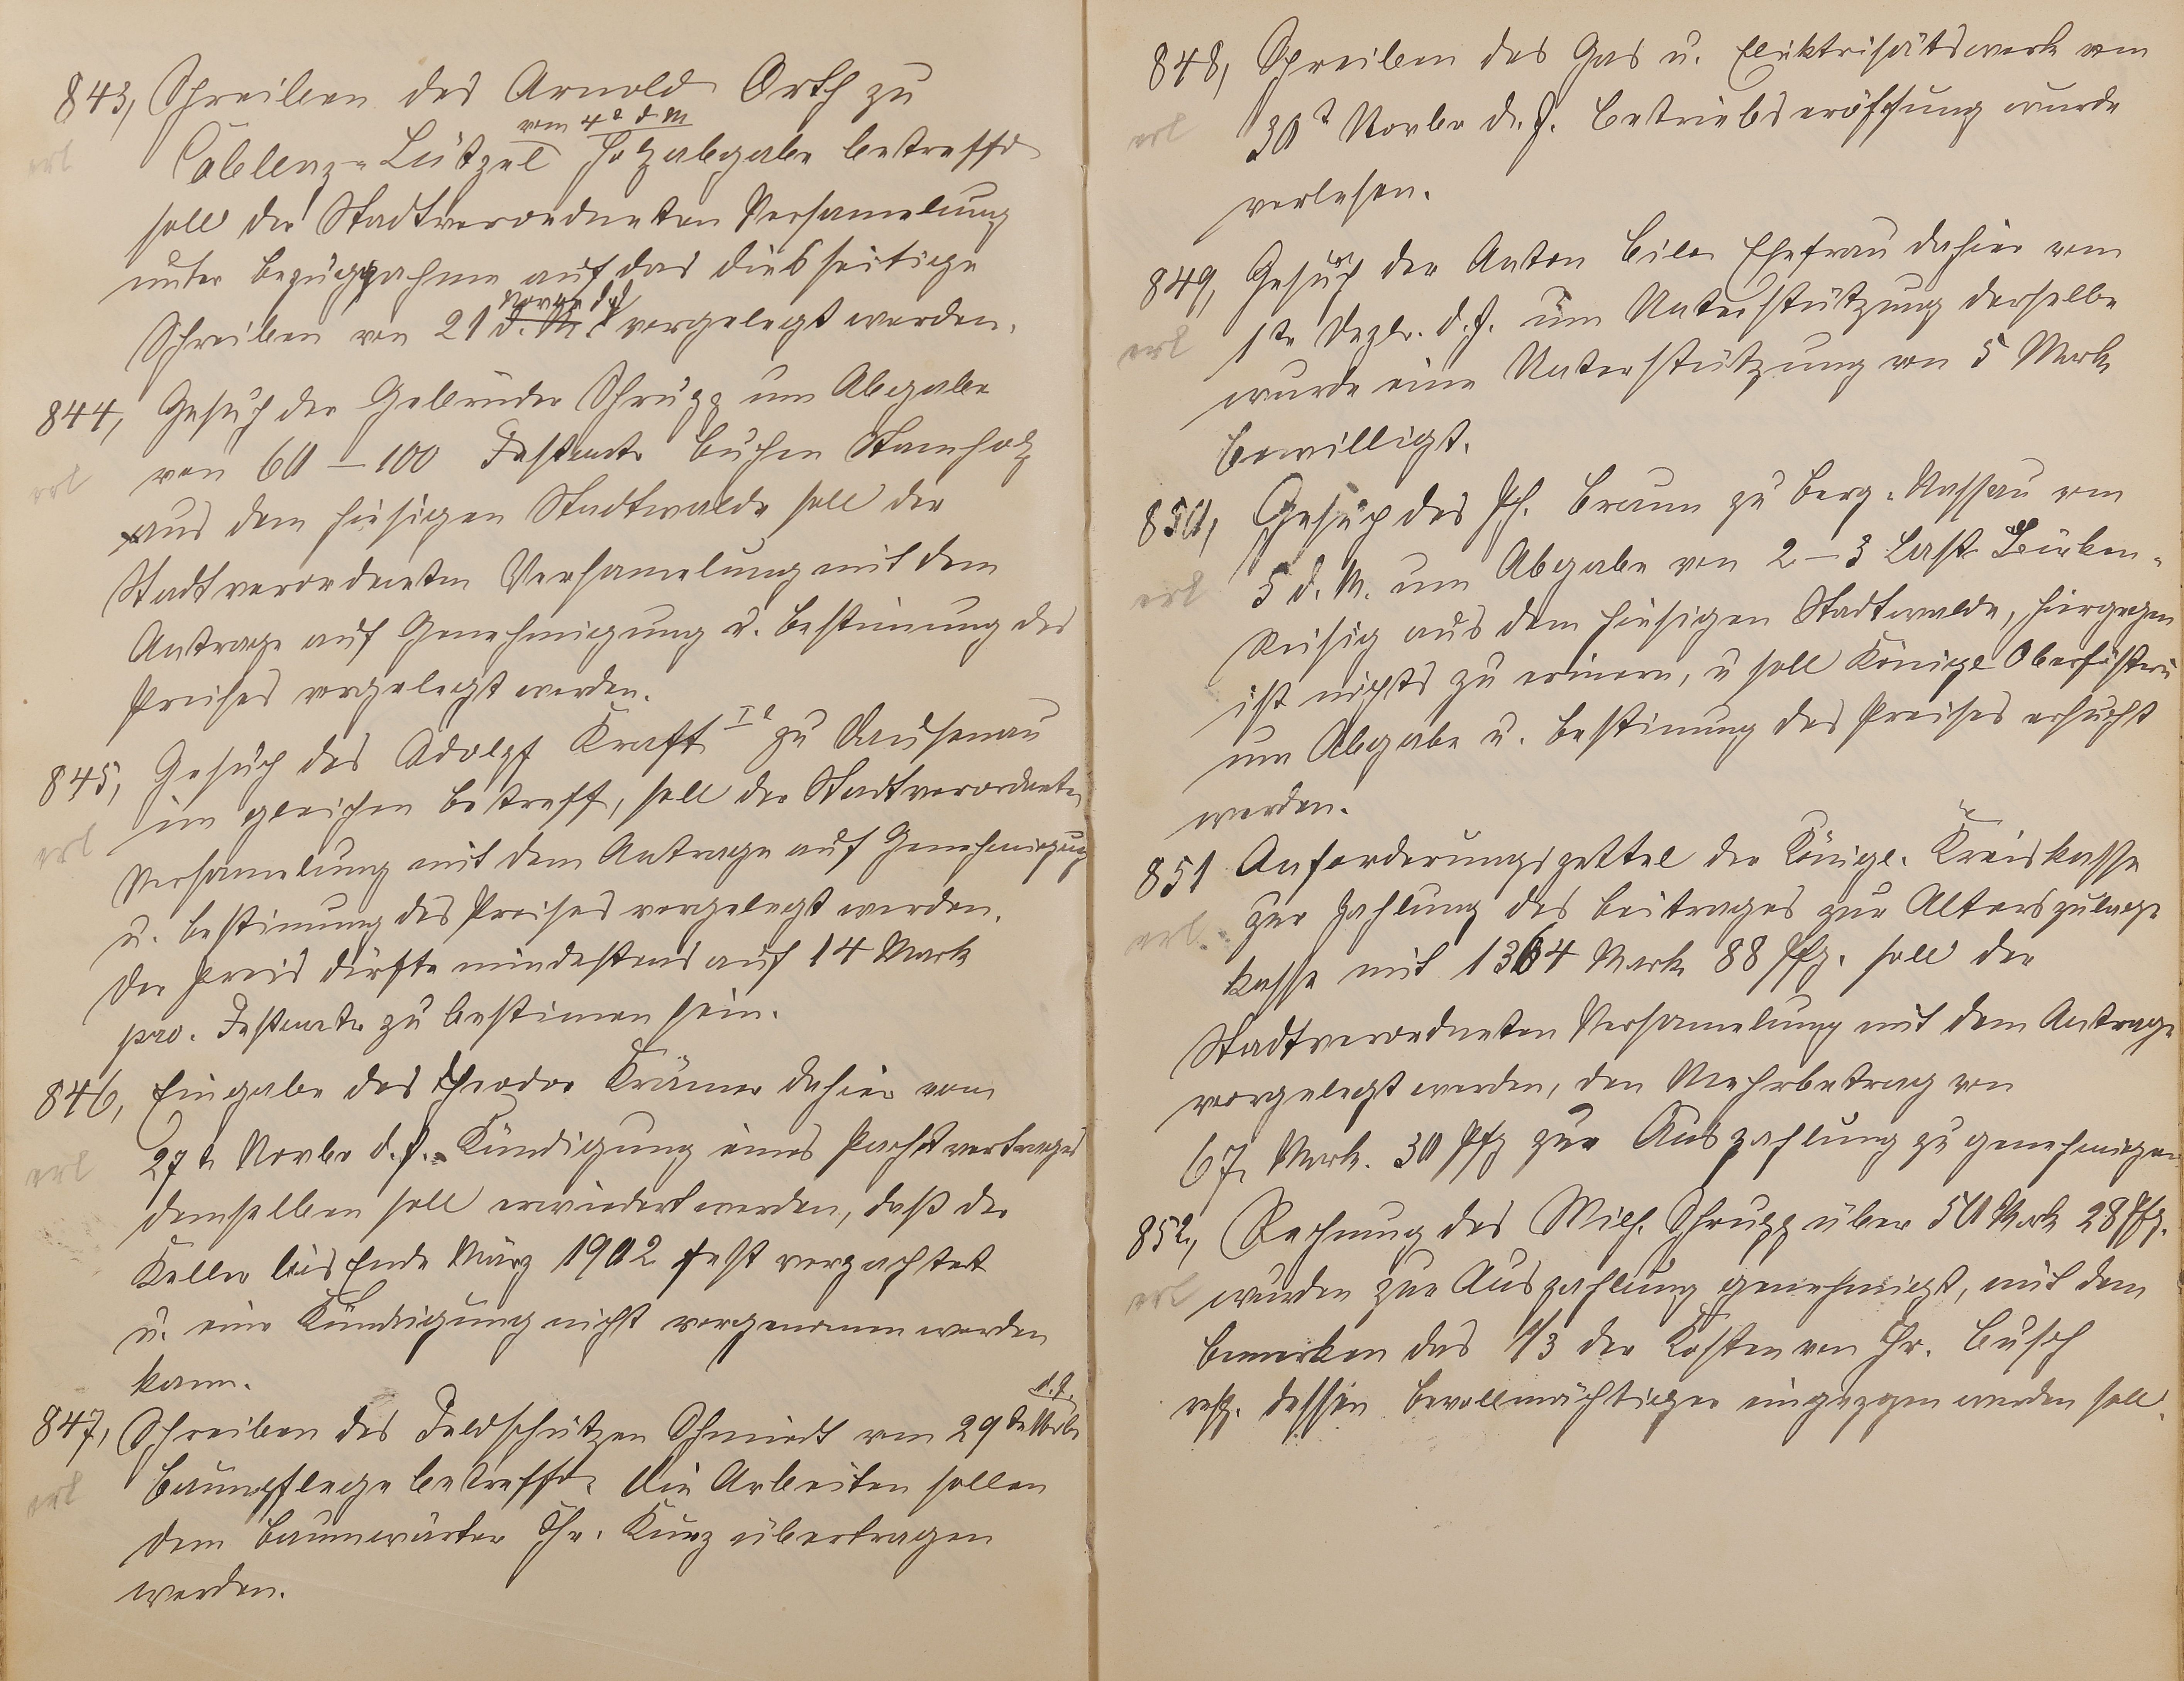 843, Schreiben des Arnold Orth zu
erl
vom 4t d. M
Coblenz-Lützel Holzabgabe betreffd
soll der Stadtverordneten Versamelung
unter Bezugnahme auf das diesseitige
Novbr d. J.
Schreiben von 21 d. M. vorgelegt werden.
844, Gesuch der Gebrüder Schrupp um Abgabe
erl
von 60 – 100 Festmtr Buchen Stamholz
aus dem hiesigen Stadtwalde soll der
Stadtverordneten Versamelung mit dem
Antrage auf Genehmigung u. Bestimung des
Preises vorgelegt werden.
845, Gesuch des Adolph Kraft Ir zu Dausenau
erl
im gleichen Betreff, soll der Stadtverordneten
Versamelung mit dem Antrage auf Genehmigung
u. Bestimung des Preises vorgelegt werden.
Der Preis dürfte mindestens auf 14 Mark
pro. Festmtr zu bestimen sein.
846, Eingabe des Theodor Krämer dahier vom
erl
27t Novbr d. J. Kündigung eines Pachtvertrages
demselben soll erwiedert werden, daß der
Keller bis Ende März 1902 fest verpachtet
u. eine Kündigung nicht vorgenomen werden
kann.
d. J.
847, Schreiben des Feldschützen Schmidt vom 29te Novbr
erl
Baumpflege betreffd. Die Arbeiten sollen
dem Baumwärter Chr. Kurz übertragen
werden.
848, Schreiben des Gas u. Elektrisitätswerk vom
erl
30t Novbr d. J. Betriebseröffnung wurde
verlesen.
849, Gesuch der Anton Eilen Ehefrau dahier vom
erl
1te Dezbr. d. J. um Unterstützung derselbe
wurde eine Unterstützung von 5 Mark
bewilligt.
850, Gesuch des Ph. Braun zu Berg-Nassau vom
erl
5 d. M. um Abgabe von 2–3 Last Birken-
Reisig aus dem hiesigen Stadtwalde, hiergegen
ist nichts zu erinern, u soll Königl Oberförsterei
um Abgabe u. Bestimung des Preises ersucht
werden.
851 Anforderungszettel der Königl. Kreiskasse
erl.
zur Zahlung des Beitrages zur Alterszulage
kasse mit 1364 Mark 88 Pfg. soll der
Stadtverordneten Versamelung mit dem Antrage
vorgelegt werden, den Mehrbetrag von
67 Mark. 30 Pfg zur Auszahlung zu genehmigen
852, Rechnung des Wilh. Schrupp über 50 Mark 28 Pfg.
erl
wurden zur Auszahlung genehmigt, mit dem
Bemerken das 1/3 der Kosten von Hr. Busch
resp. dessen Bevollmächtigen eingezogen werden soll.